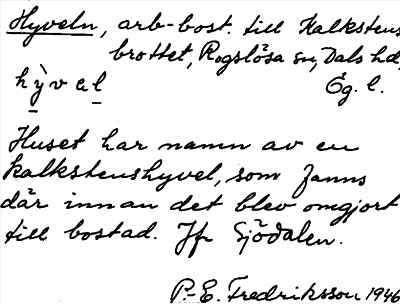 Hyveln, arb-bost. till Kalkstens
brottet, Rogslösa sn, Dals hd,
hỳvel Ög. l.
Huset har namn av en
kalkstenshyvel, som fanns
där innan det blev omgjort
till bostad. Jfr Sjödalen.
P.-E. Fredriksson 1946